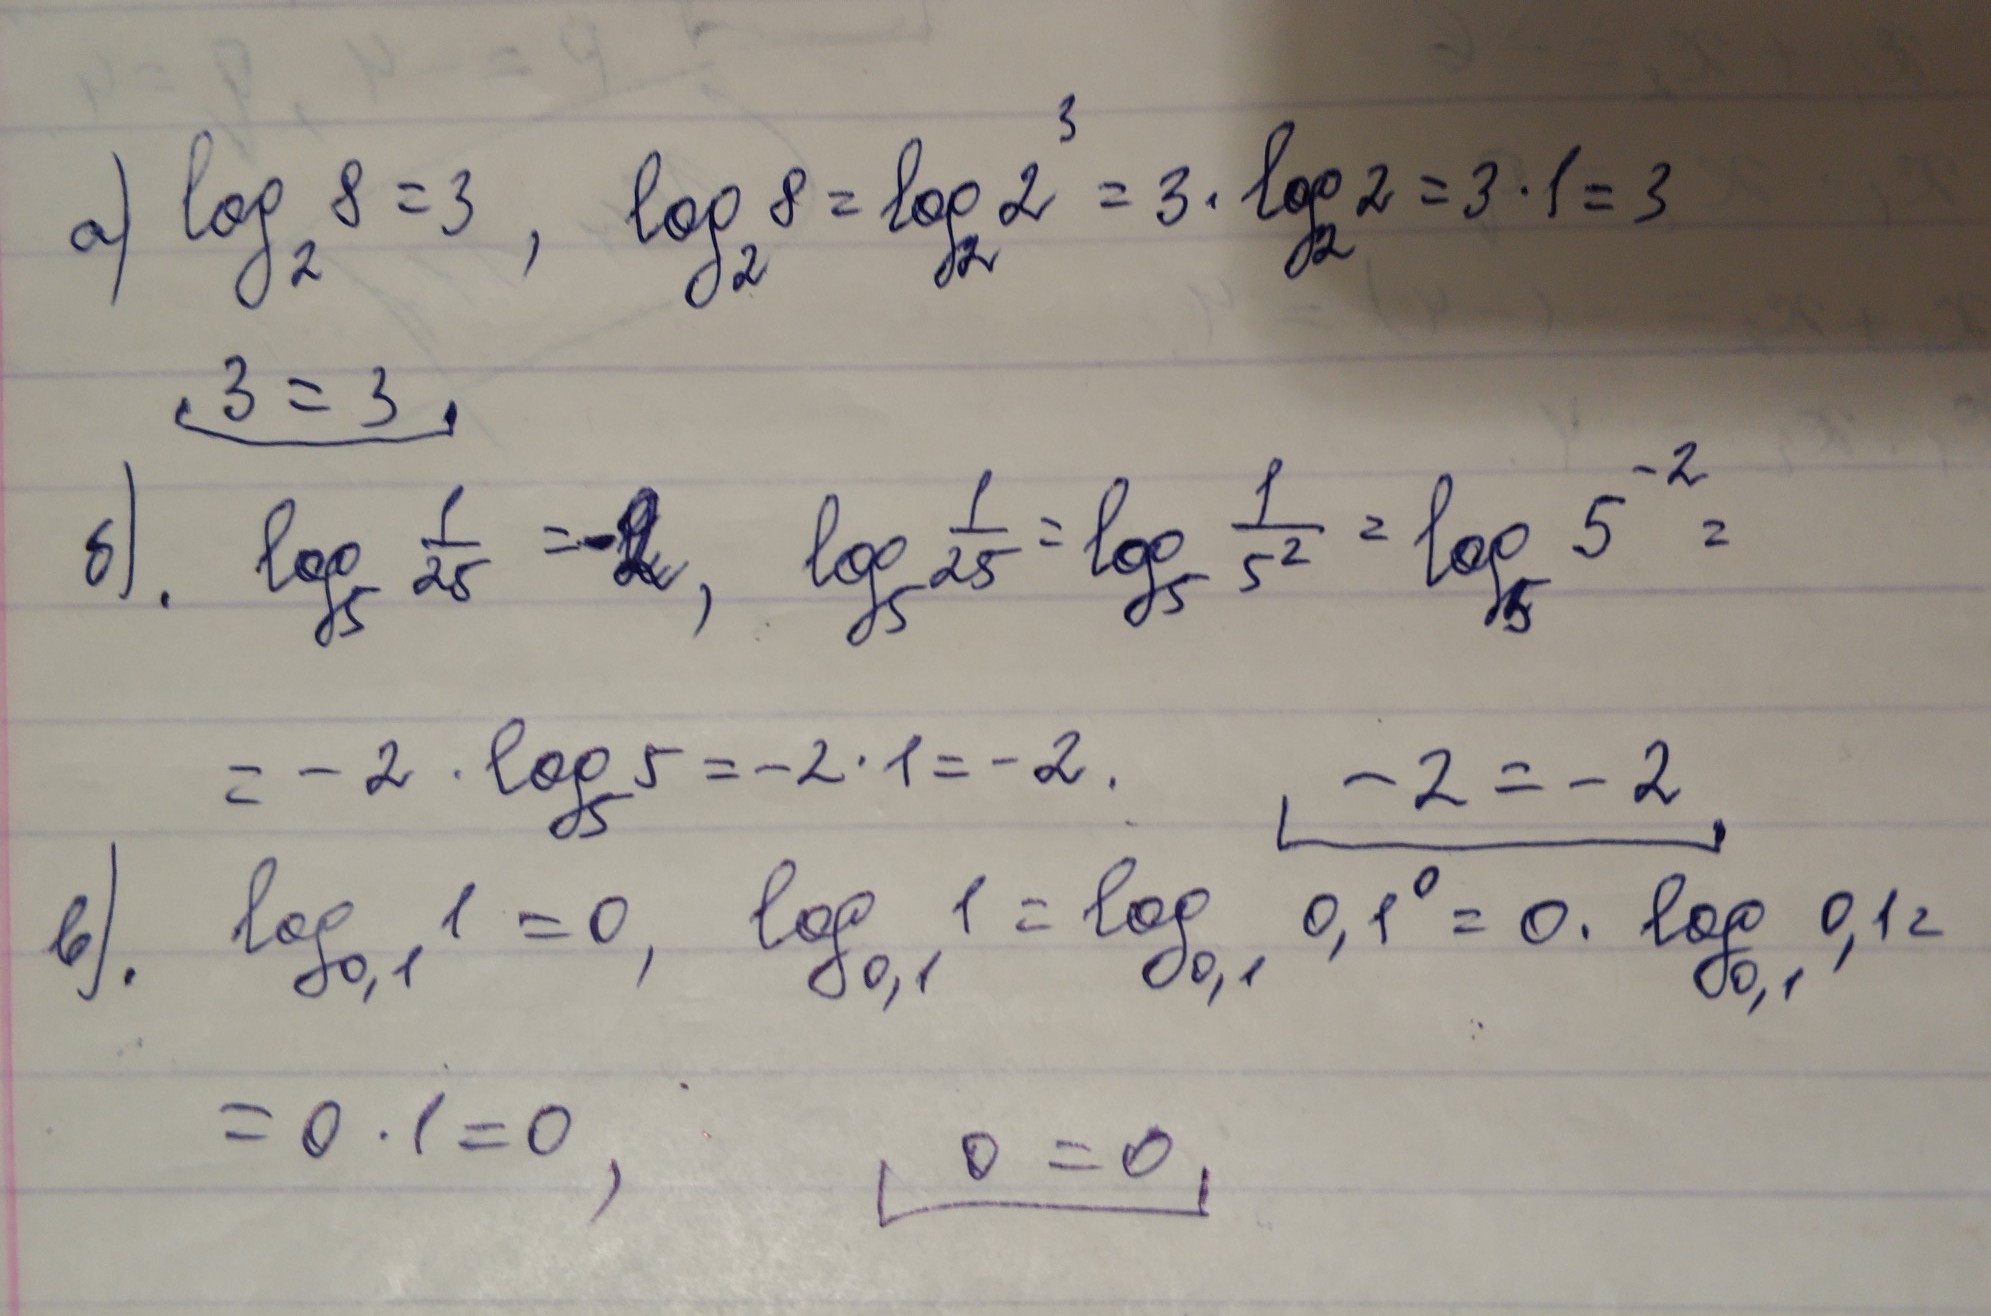 а) log₂ 8 = 3, log₂ 8 = log₂ 2³ = 3 · log₂ 2 = 3 · 1 = 3
3 = 3
б). log₅ 1/25 = -2, log₅ 1/25 = log₅ 1/5² = log₅ 5⁻² =
= -2 · log₅ 5 = -2 · 1 = -2. -2 = -2
в). log₀,₁ 1 = 0, log₀,₁ 1 = log₀,₁ 0,1⁰ = 0 · log₀,₁ 0,1 =
= 0 · 1 = 0, 0 = 0